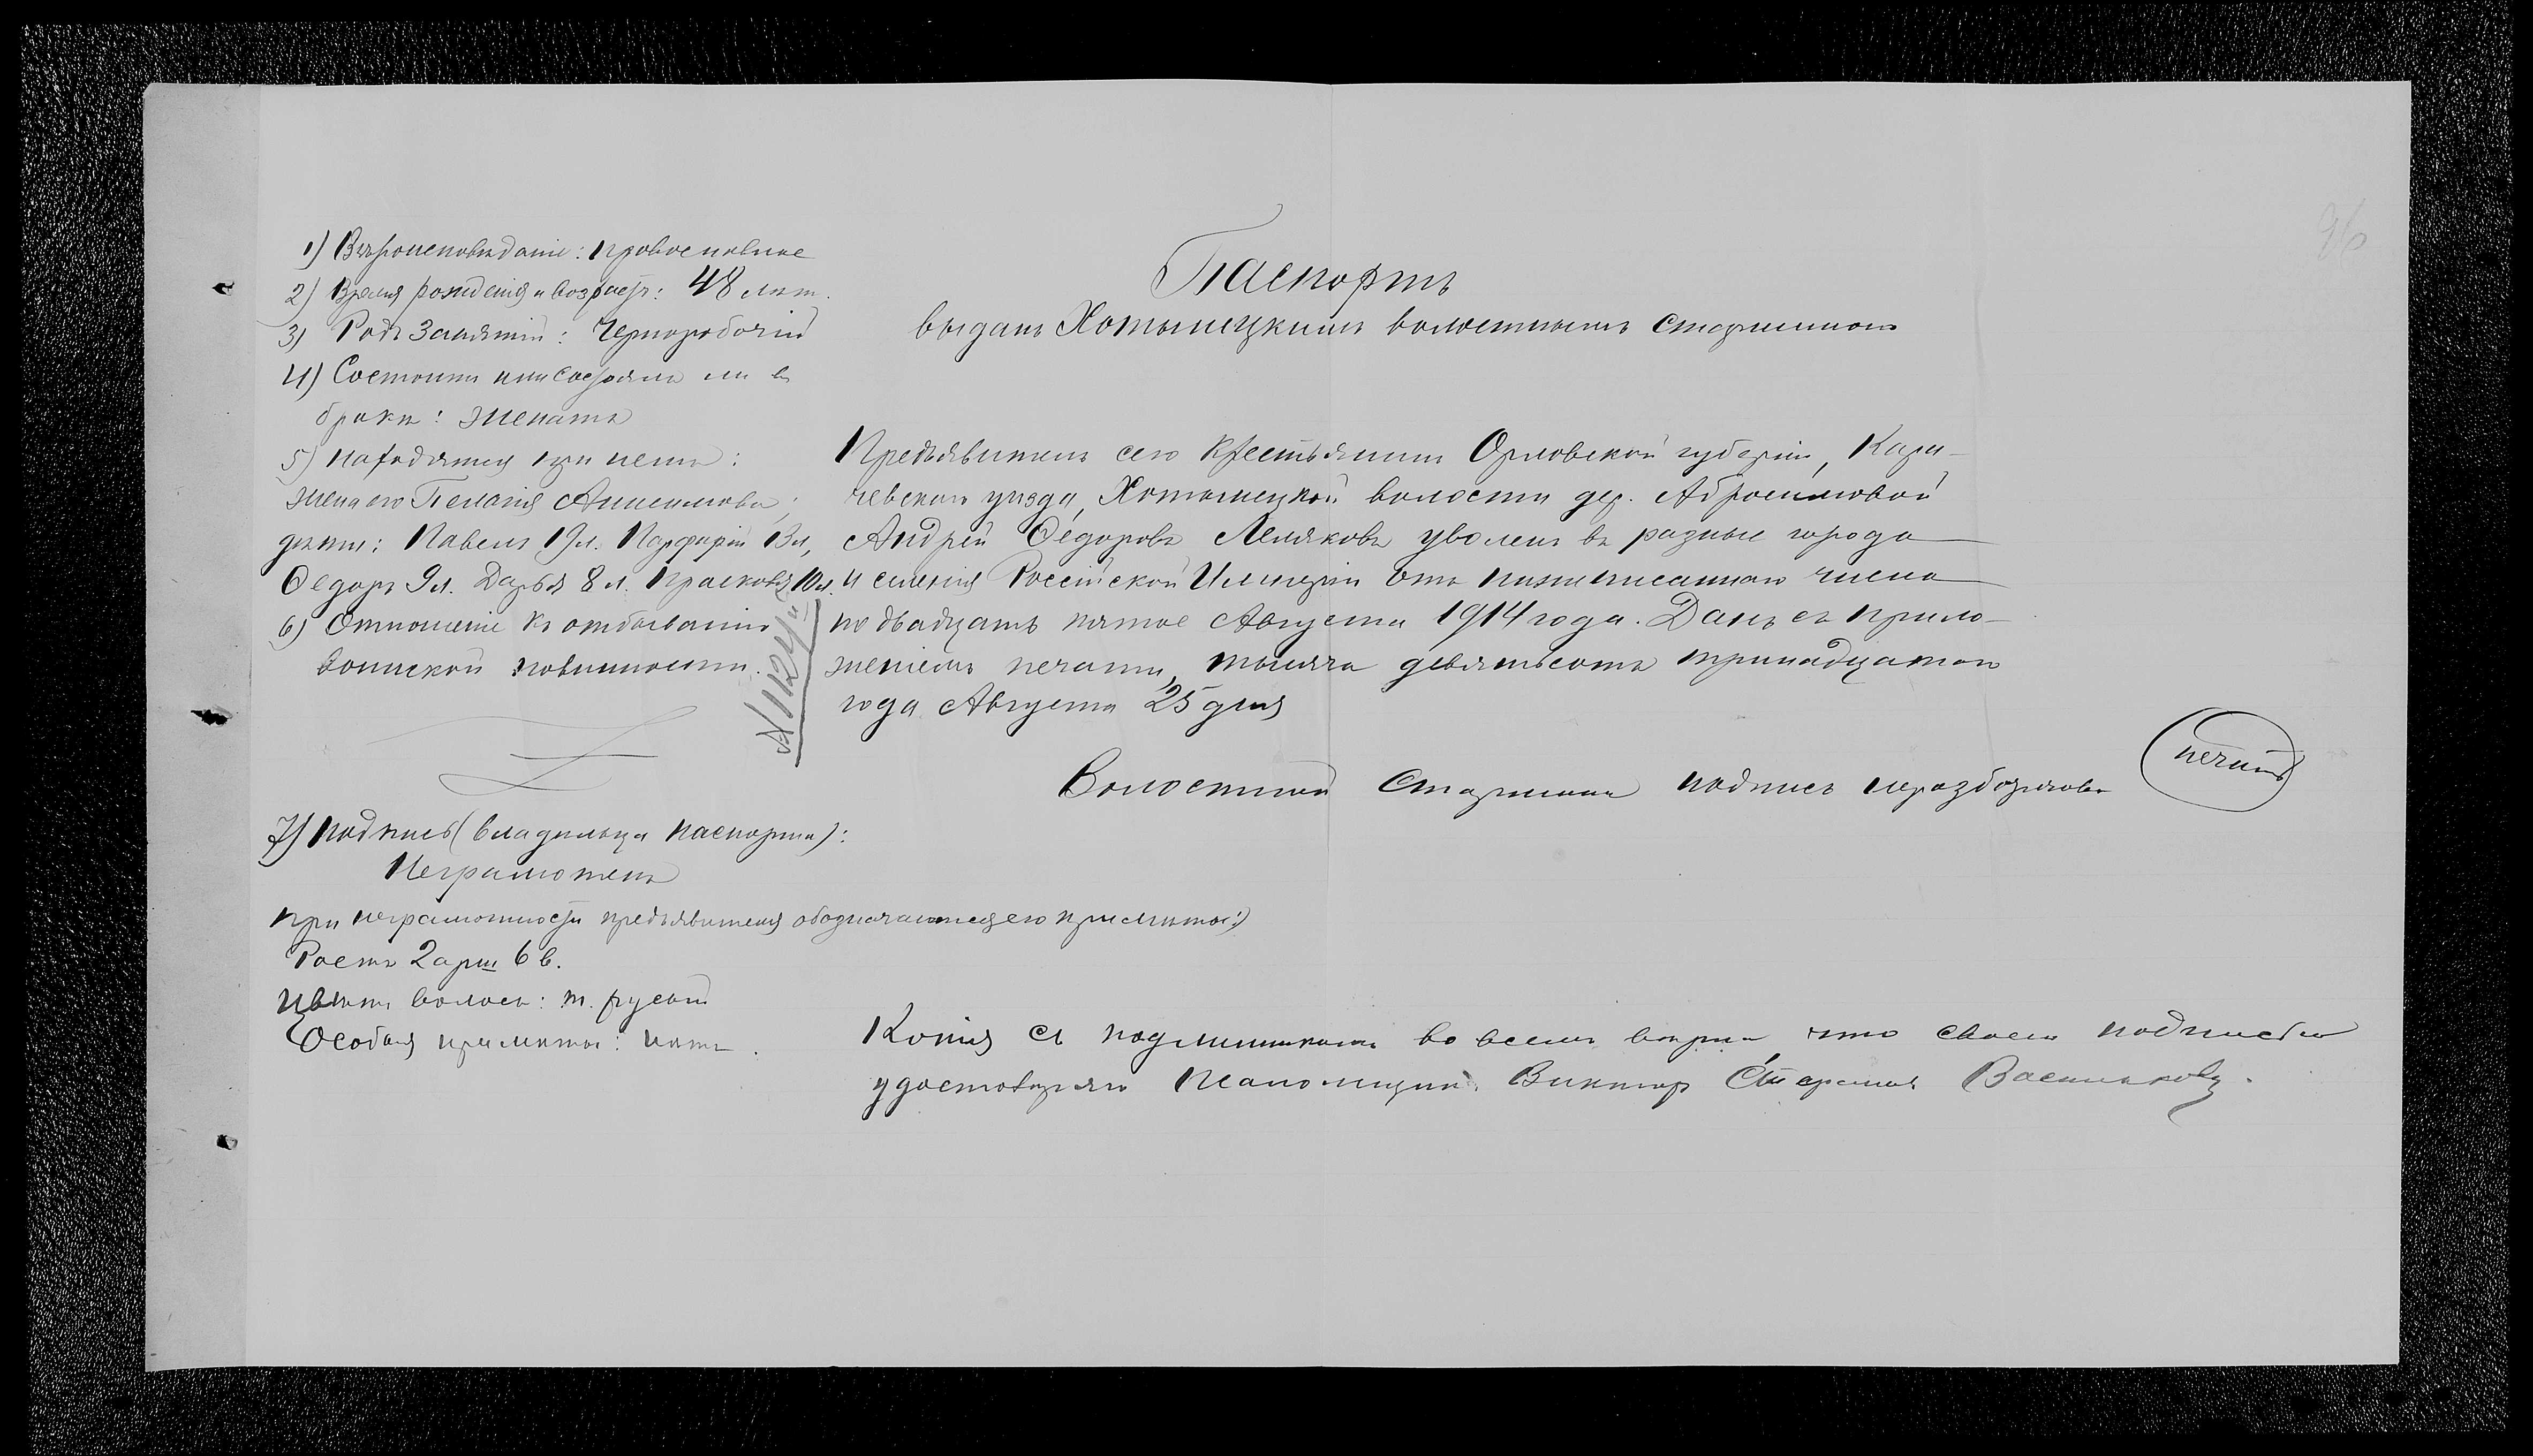 96
1) Вѣроисповѣданіе: православное
2) Время рожденія и возрастъ: 48 лѣт.
3) Родъ занятій: Чернорабочій
4) Состоитъ или состоялъ ли въ
бракѣ: женатъ
5) Находятся при немъ:
жена его Пелагія Анисимова,
дѣти: Павелъ 19 л. Парфирій 13 л,
Ѳедоръ 9 л. Дарья 8 л. Прасковья 10 л.
6) Отношеніе къ отбыванію
воинской повинности.
7) Подпись (владѣльца паспорта):
Неграмотенъ
При неграмотности предъявителя обозначаются его примѣты:)
Ростъ 2 арш 6 в.
Цвѣтъ волосъ: т. русый
Особыя примѣты: нѣтъ.
Паспортъ
выданъ Хотынецкимъ волостнымъ старшиною
Предъявитель сего крестьянинъ Орловской губерніи, Кара-
чевскаго уѣзда, Хотынецкой волости дер. Абросимовой
Андрей Ѳедоровъ Лемяковъ уволенъ въ разные города
и селенія Россійской Имперіи отъ нижеписаннаго числа
по двадцать пятое Августа 1914 года. Данъ съ прило-
женіемъ печати, тысяча девятьсотъ тринадцатаго
года Августа 25 дня
Волостной Старшина подпись неразборчива
печать
Копія съ подлинникомъ во всемъ вѣрна, что своею подписью
удостовѣряю Виктор Васильковъ.